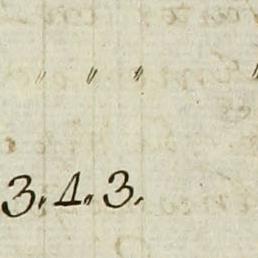 〃 〃 〃 〃
3. 1. 3.